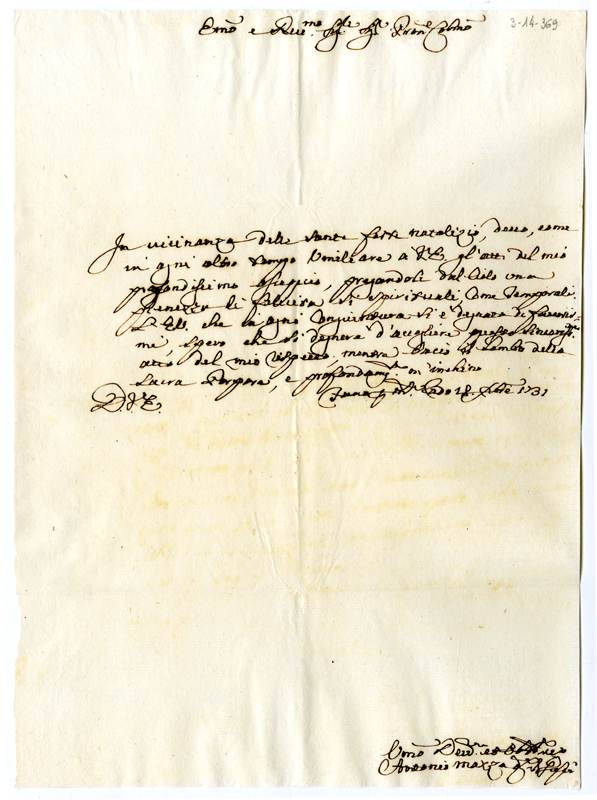 3-14-369
Emo e Reu.mo Sig.re Sig. Pron.e Colmo
In uicinanza delle sante feste natalizie, deuo, come
in ogni altro tempo Vmiliare a V.E. gl'atti del mio
profondissimo ossequio, pregandoli dal Cielo una
di felicità si spirituali, come Temporali.
L'E.V. che in ogni congiuntura si è degnata di
me, spero che si degnerà d'accogliere questo
atto del mio rispetto, mentre bacio il lembo della
Sacra Porpora, e profondam.te m'inchino
D.V.E. 1731
Vmo Deu.
Antonio Mazza